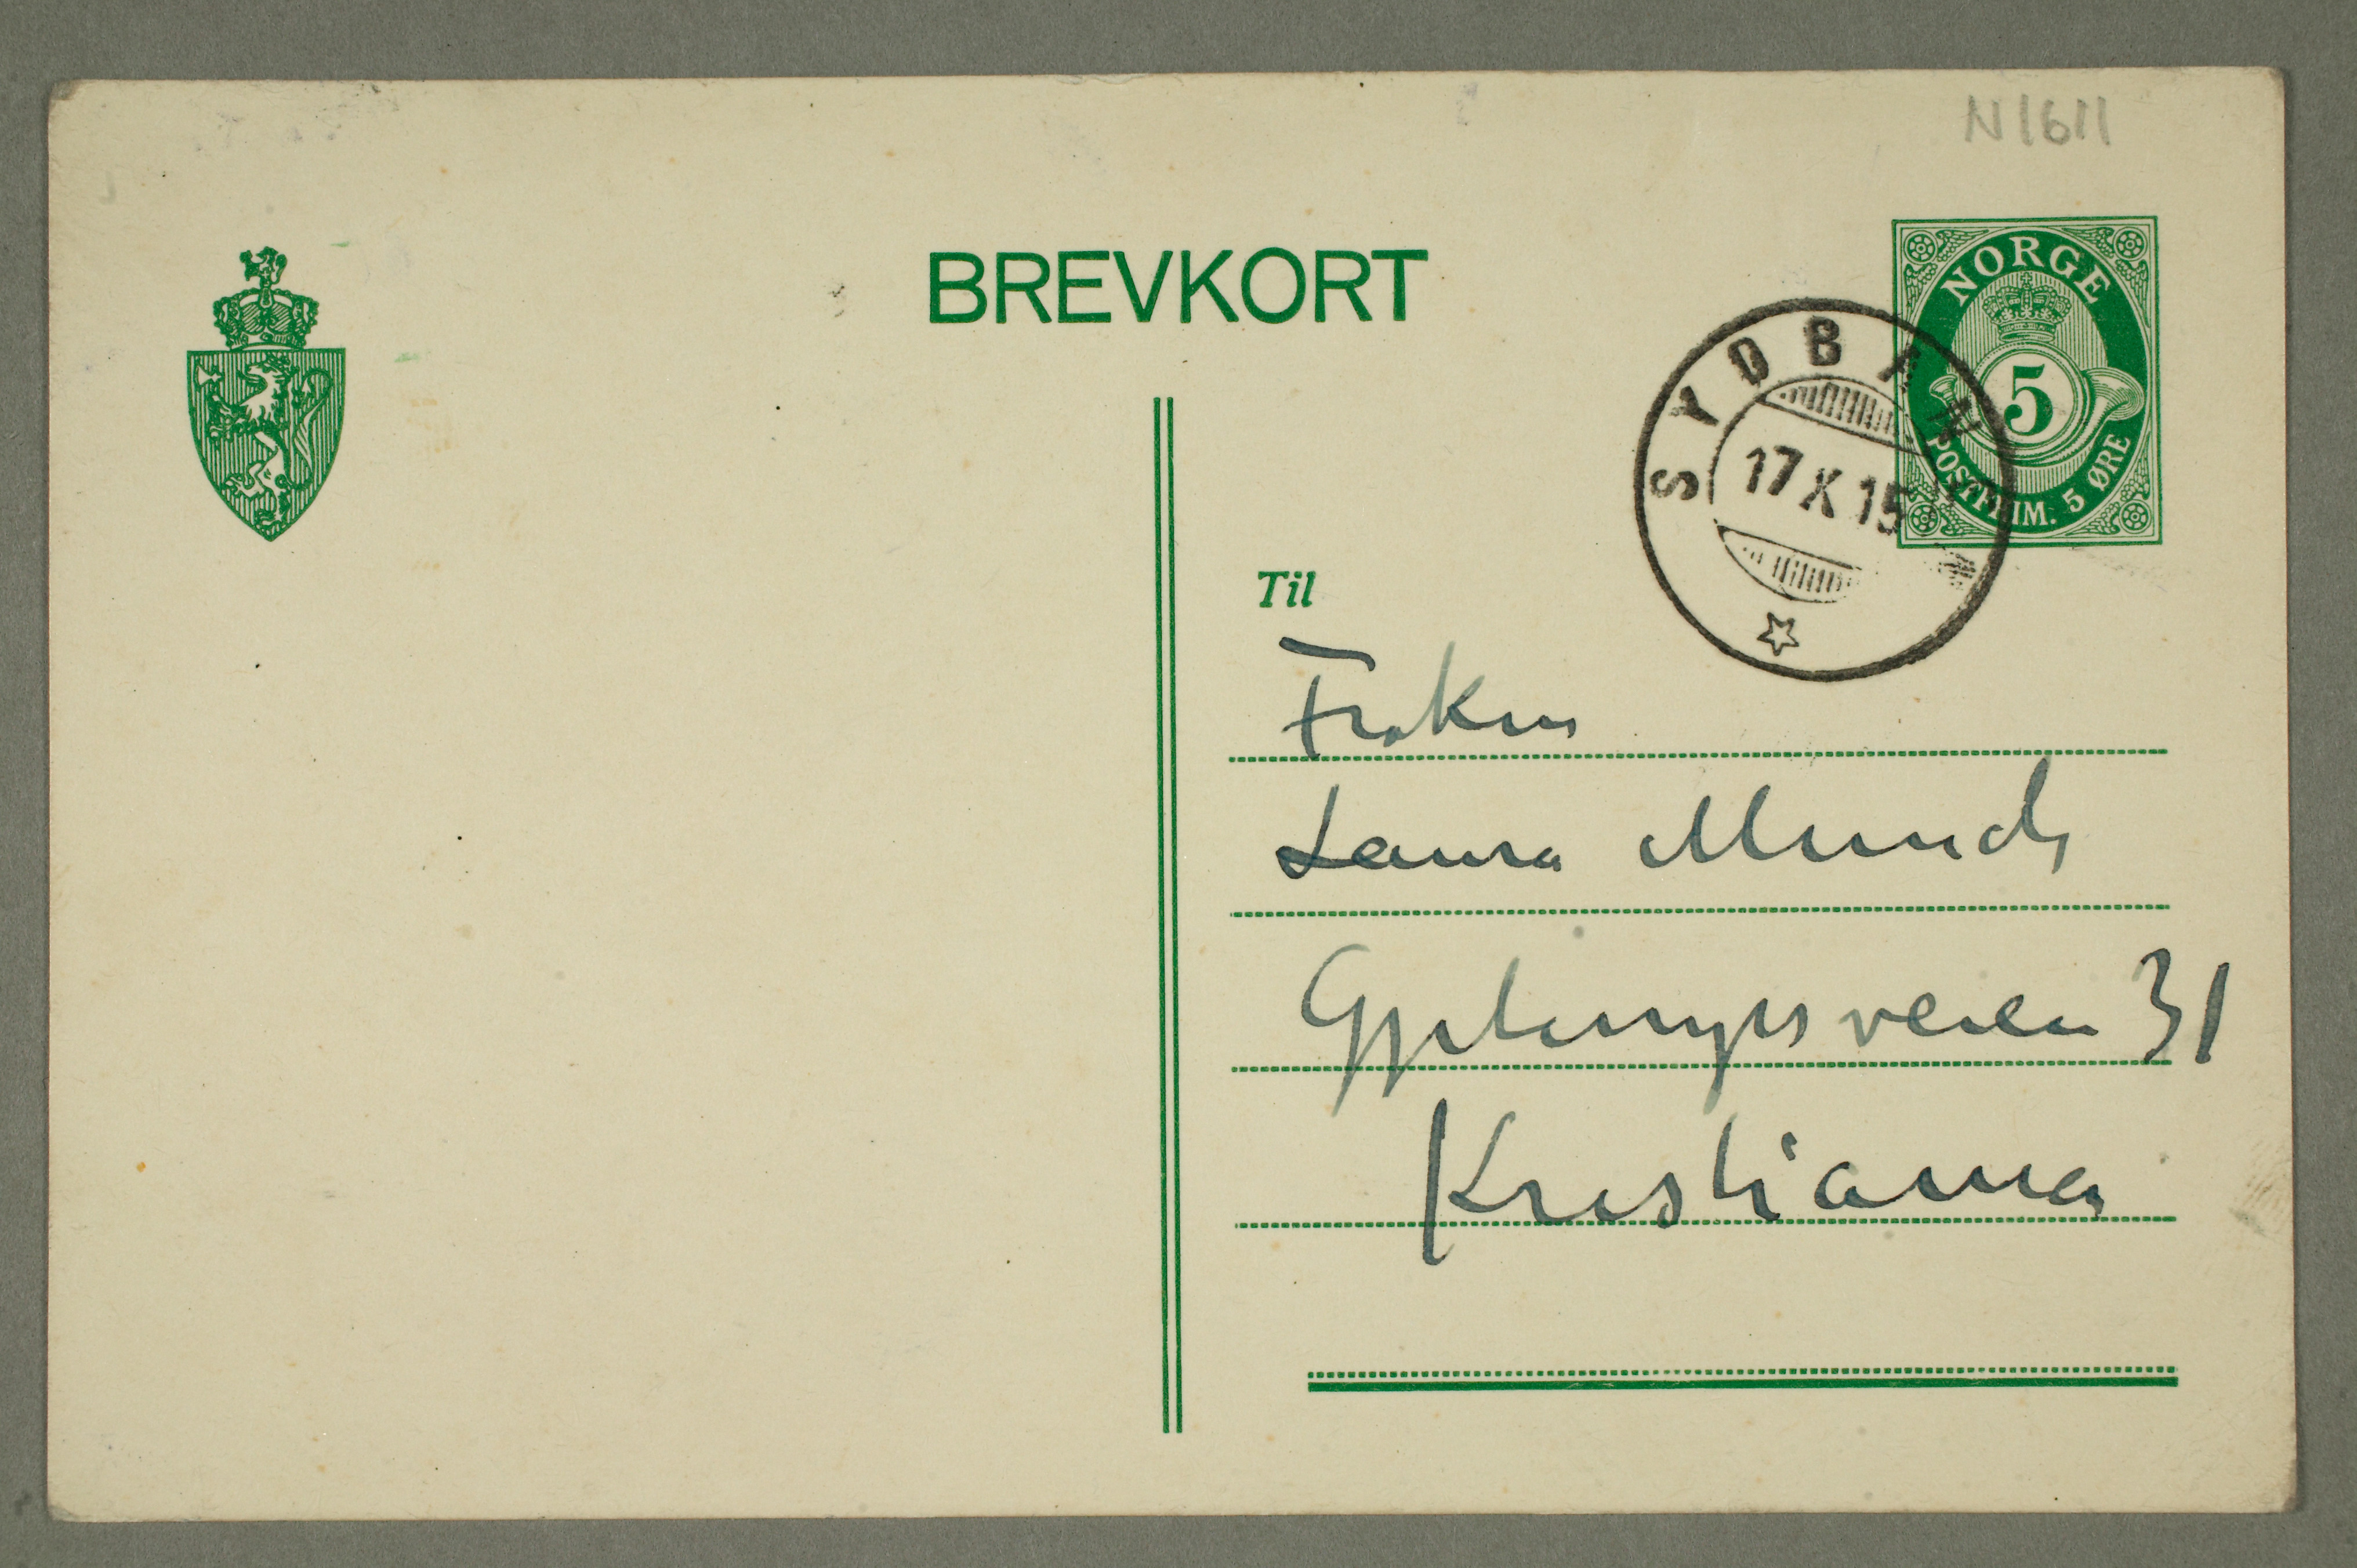 N 1611
BREVKORT
NORGE
5
POSTFRIM. 5 ØRE
SYDBAN
17 X 15
Til
Frøken
Laura Munch
31
Kristiania